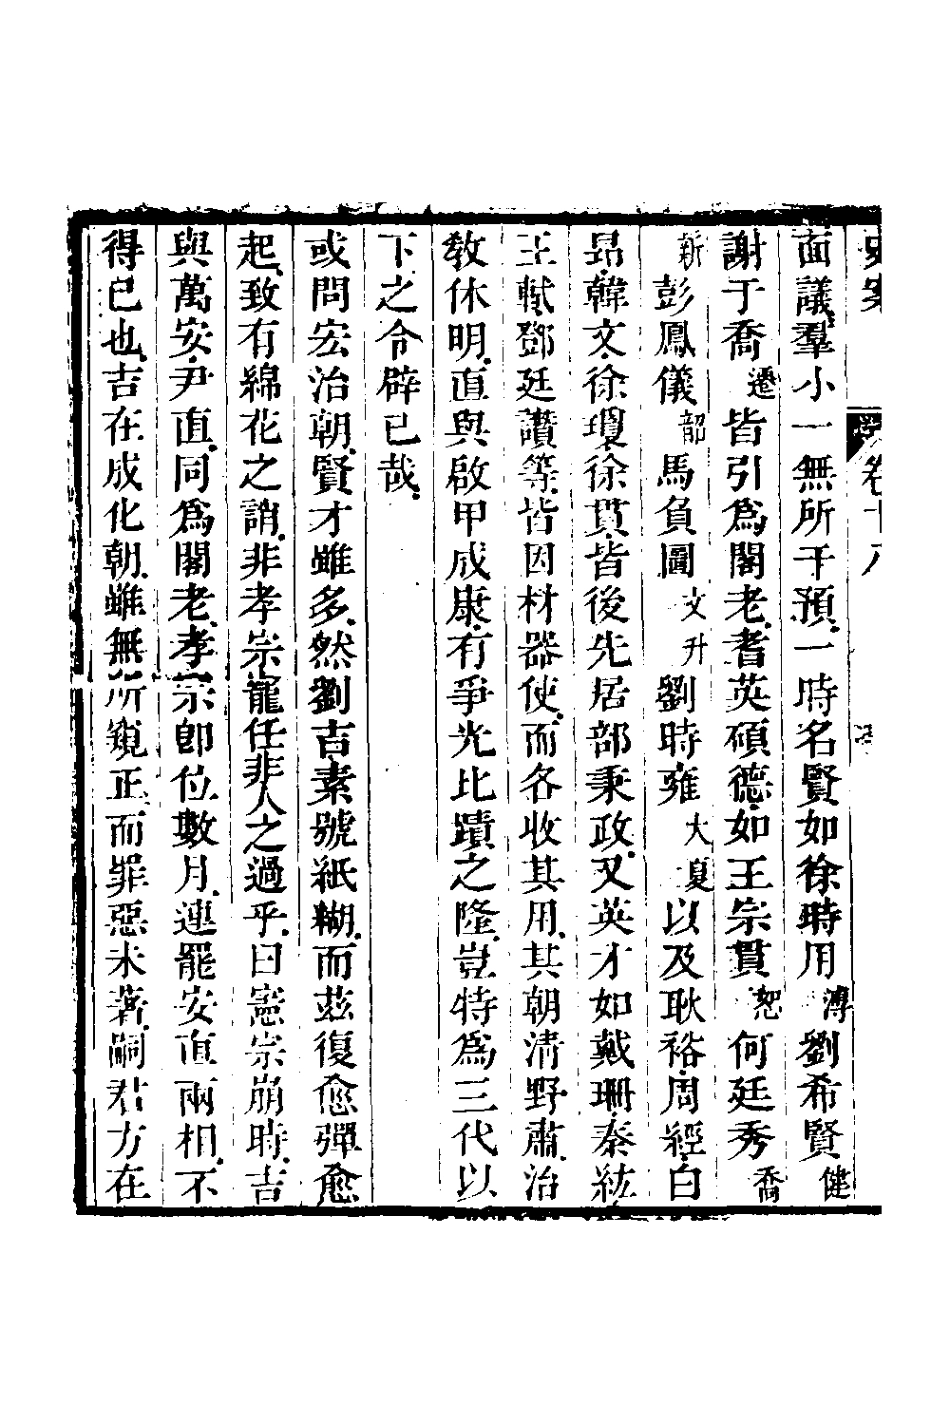 史案 卷十八
面議羣小一無所干預一時名賢如徐時用溥劉希賢健
謝于喬遷皆引爲閣老耆英碩德如王宗貫恕何廷秀喬
新彭鳳儀韶馬負圖文升劉時雍大夏以及耿裕周經白
昻韓文徐瓊徐貫皆後先居部秉政又英才如戴珊秦紘
王軾鄧廷讚等皆因材器使而各收其用其朝清野肅治
敎休明直與啟甲成康有爭光比蹟之隆豈特爲三代以
下之令辟已哉
或問宏治朝賢才雖多然劉吉素號紙糊而茲復愈彈愈
起致有綿花之誚非孝宗寵任非人之過乎曰憲宗崩時吉
與萬安尹直同爲閣老孝宗卽位數月連罷安直兩相不
得已也吉在成化朝雖無所窺正而罪惡未著嗣君方在